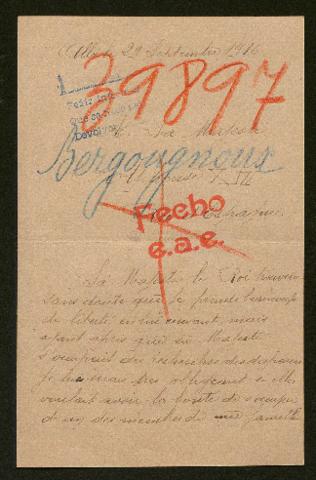 29 Septembre 1916
39897
Devolver
Sa Majesté
Bergougnoux
Hecho
e.a.e.
Sa Majesté le Roi trouvera
sans doute que je prends beaucoup
de liberté en lui écrivant, mais
ayant appris que sa Majesté
s'occupait des recherches des disparus
Je lui serais très obligeant si elle
voulait avoir la bonté de s'occuper
d'un des membres de ma famille